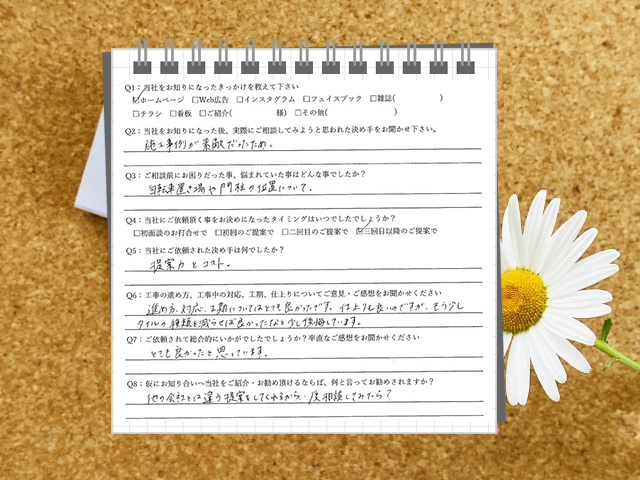 Q1：当社をお知りになったきっかけを教えて下さい
☑ホームページ □Web広告 □インスタグラム □フェイスブック □雑誌( )
□チラシ □看板 □ご紹介( 様) □その他( )
Q2：当社をお知りになった後、実際にご相談してみようと思われた決め手をお聞かせ下さい。
施工事例が素敵だったため。
Q3：ご相談前にお困りだった事、悩まれていた事はどんな事でしたか？
自転車置き場や門柱の位置について。
Q4：当社にご依頼頂く事をお決めになったタイミングはいつでしたでしょうか？
□初面談のお打合せで □初回のご提案で □二回目のご提案で ☑三回目以降のご提案で
Q5：当社にご依頼された決め手は何でしたか？
提案力とコスト。
Q6：工事の進め方、工事中の対応、工期、仕上りについてご意見・ご感想をお聞かせください
進め方、対応、工期についてはとても良かったです。仕上りも良いのですが、もう少し
タイルの種類を減らせば良かったなと少し後悔しています。
Q7：ご依頼されて総合的にいかがでしたでしょうか？率直なご感想をお聞かせください
とても良かったと思っています。
Q8：仮にお知り合いへ当社をご紹介・お勧め頂けるならば、何と言ってお勧めされますか？
他の会社とは違う提案をしてくれるから一度相談してみたら？